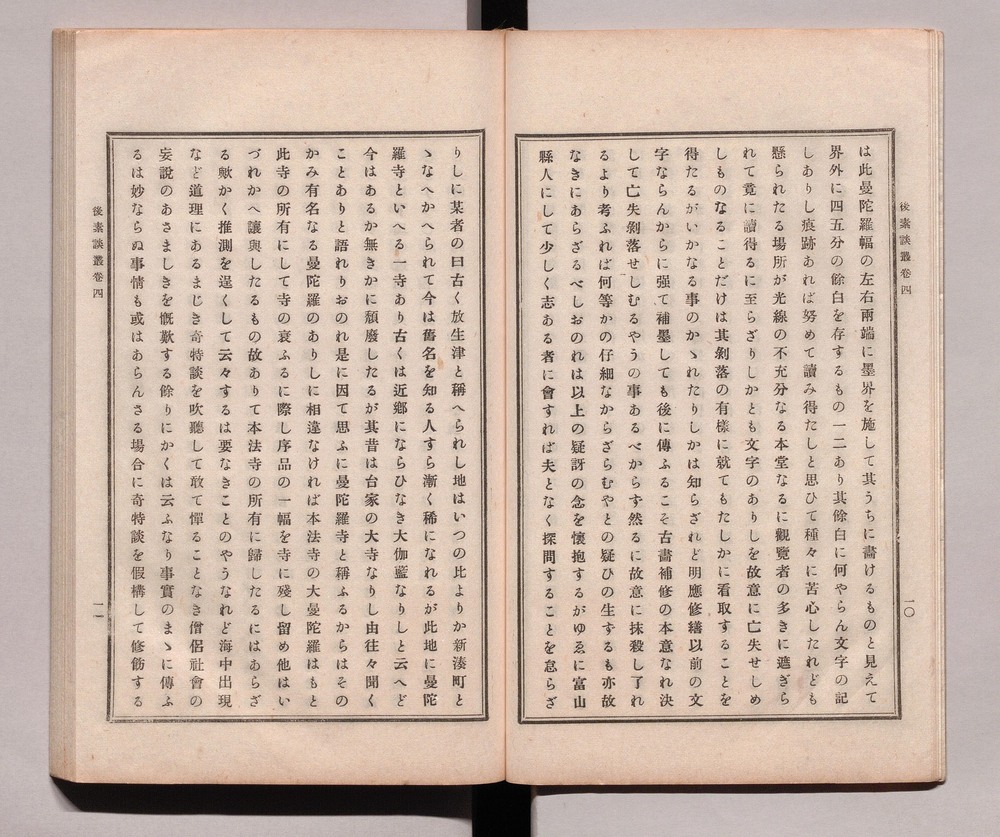 後素談叢卷四
一〇
は此曼陀羅幅の左右兩端に墨界を施して其うちに畵けるものと見えて
界外に四五分の餘白を存するもの一二あり其餘白に何やらん文字の記
しありし痕跡あれば努めて讀み得たしと思ひて種々に苦心したれども
懸られたる場所が光線の不充分なる本堂なるに觀覽者の多きに遮ぎら
れて竟に讀得るに至らざりしかとも文字のありしを故意に亡失せしめ
しものなることだけは其剝落の有様に就てもたしかに看取することを
得たるがいかなる事のかゝれたりしかは知らざれど明應修繕以前の文
字ならんからに强て補墨しても後に傳ふるこそ古畵補修の本意なれ決
して亡失剝落せしむるやうの事あるべからす然るに故意に抹殺し了れ
るより考ふれば何等かの仔細なからざらむやとの疑ひの生するも亦故
なきにあらざるべしおのれは以上の疑訝の念を懷抱するがゆゑに富山
縣人にして少しく志ある者に會すれば夫となく探問することを怠らざ
りしに某者の曰古く放生津と稱へられし地はいつの比よりか新湊町と
ゝなへかへられて今は舊名を知る人すら漸く稀になれるが此地に曼陀
羅寺といへる一寺あり古くは近鄕にならひなき大伽藍なりしと云へど
今はあるか無きかに頽廢したるが其昔は台家の大寺なりし由往々聞く
ことありと語れりおのれ是に因て思ふに曼陀羅寺と稱ふるからはその
かみ有名なる曼陀羅のありしに相違なければ本法寺の大曼陀羅はもと
此寺の所有にして寺の衰ふるに際し序品の一幅を寺に殘し留め他はい
づれかへ讓與したるもの故ありて本法寺の所有に歸したるにはあらざ
る歟かく推測を逞くして云々するは要なきことのやうなれど海中出現
など道理にあるまじき奇特談を吹聽して敢て憚ることなき僧侶社會の
妄說のあさましきを慨歎する餘りにかくは云ふなり事實のまゝに傳ふ
るは妙ならぬ事情も或はあらんさる場合に奇特談を假構して修飭する
後素談叢卷四
一一